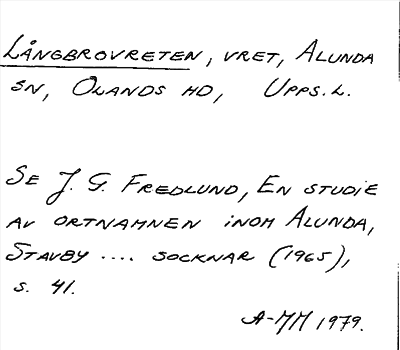 Långbrovreten, vret, Alunda
sn, Olands hd, Upps. l.
Se J. G. Fredlund, En studie
av ortnamnen inom Alunda,
Stavby .... socknar (1965),
s. 41.
A-MM 1979.